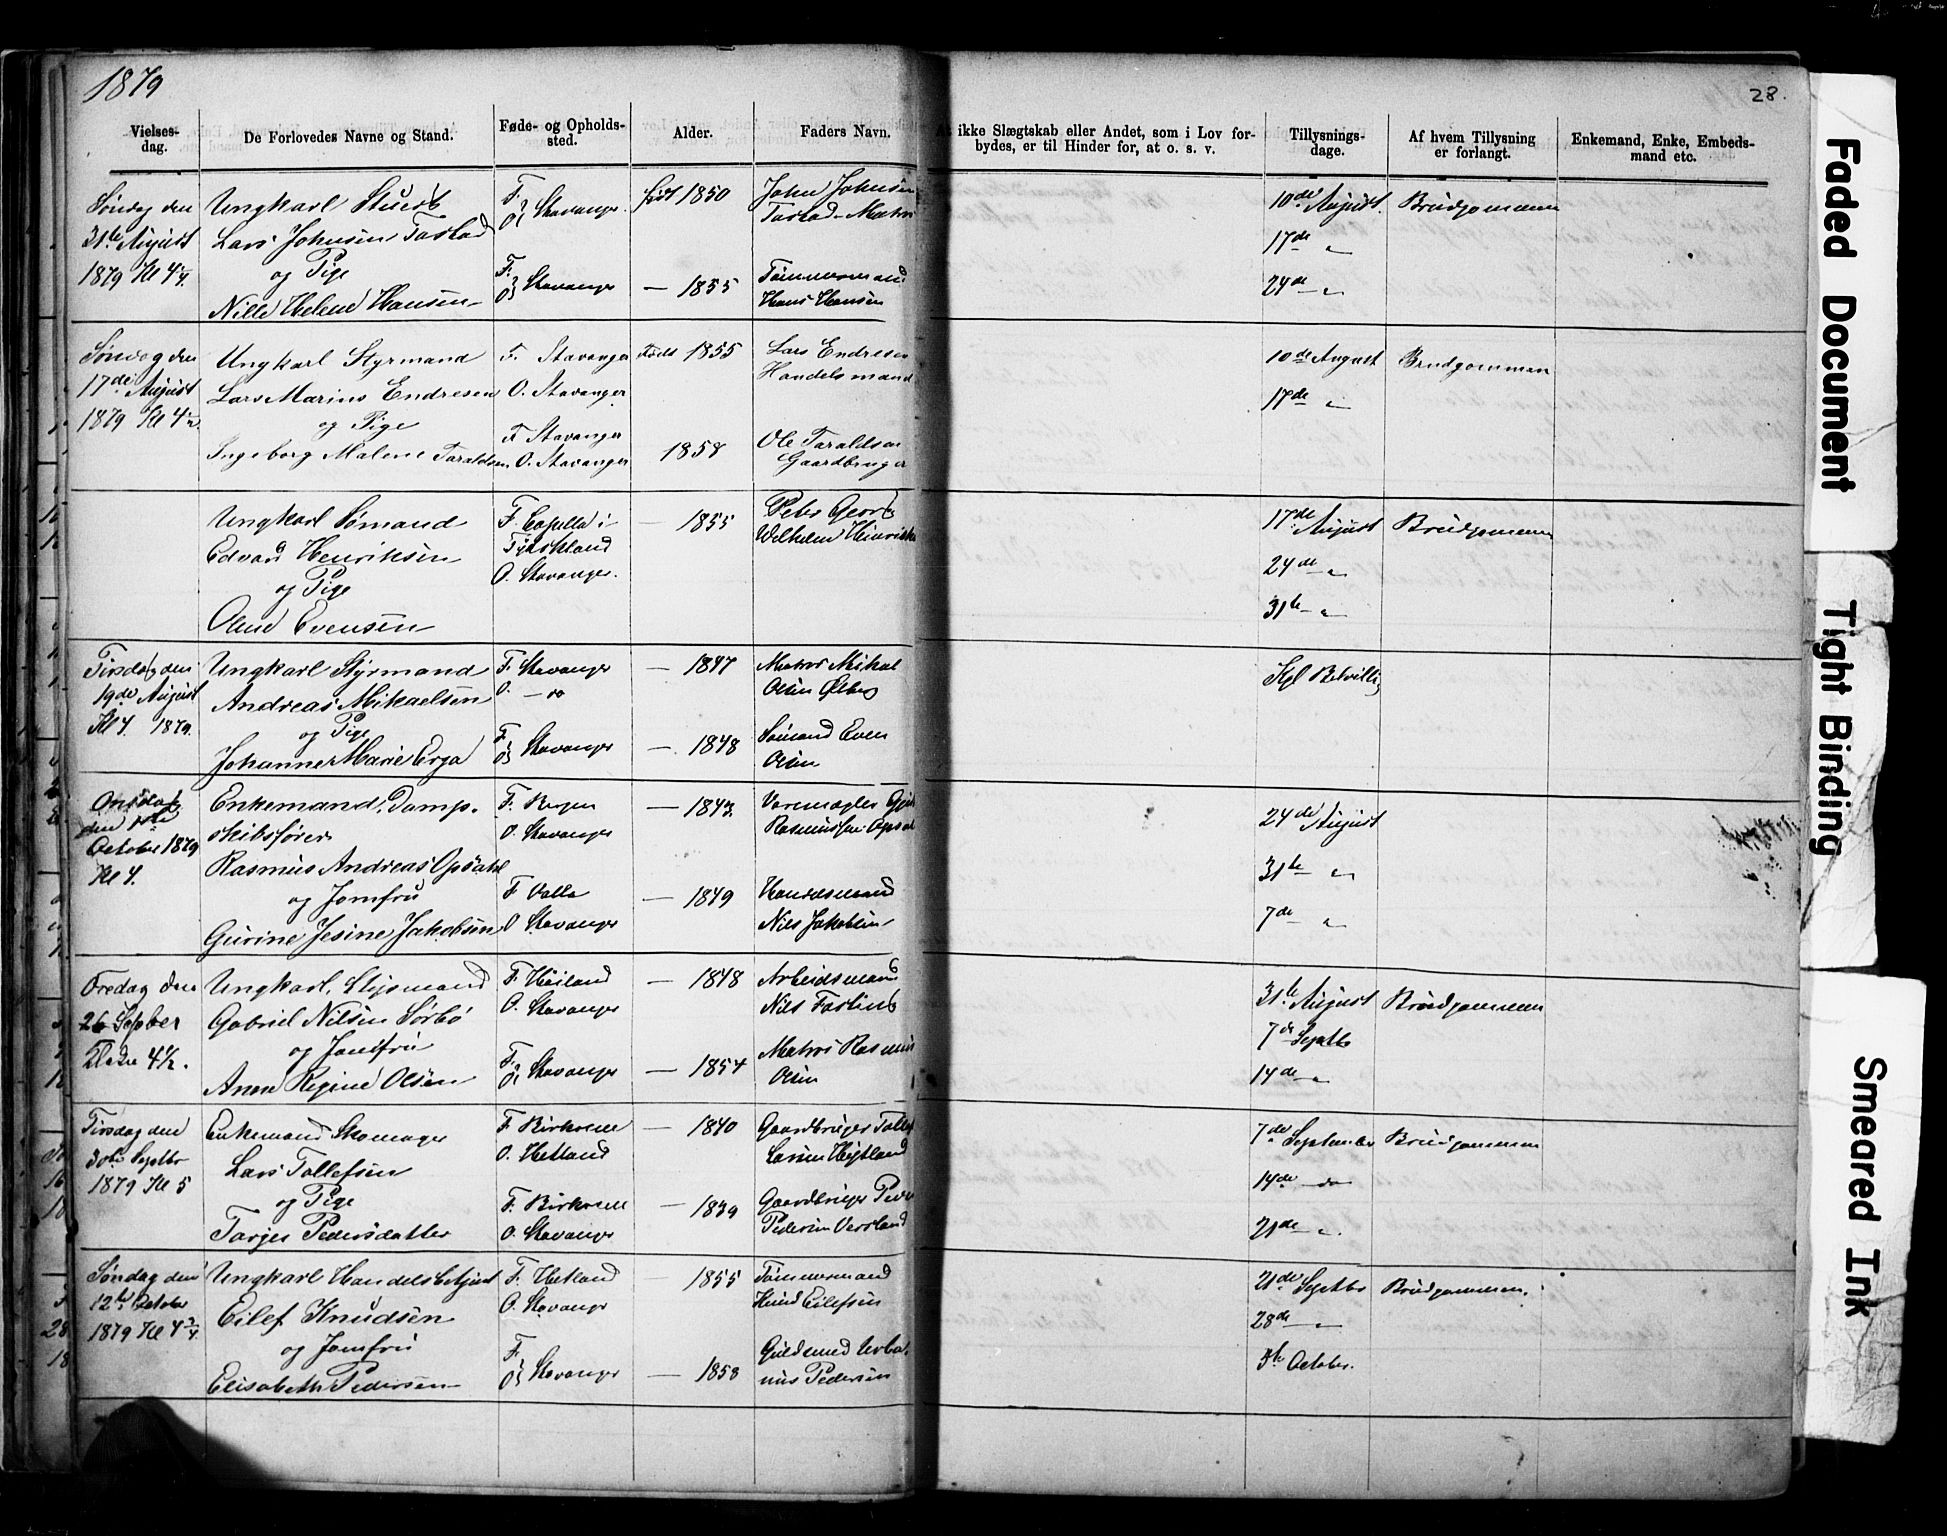 1879
28.
Vielses-
dag.
De Forlovedes Navne og Stand.
Føde- og Opholds-
sted.
Alder.
Faders Navn.
At ikke Slægtskab eller Andet, som i Lov for-
bydes, er til Hinder for, at o. s. v.
Tillysnings-
dage.
Af hvem Tillysning
er forlangt.
Enkemand, Enke, Embeds-
mand etc.
Søndag den
31te August
1879 Kl 4¼
Ungkarl Stuert
Lars Johnsen Tastad
og Pige
Nille Helene Hansen
F. & O. Stavanger
F. & O. Stavanger
født 1850
— 1855
John Johnsen
Tastad, Matros
Tømmermand
Hans Hansen
10de August
17de "
24de "
Brudgommen
Søndag den
17de August
1879 Kl 4½
Ungkarl Styrmand
Lars Marius Endresen
og Pige
Ingeborg Malene Taraldsen
F. Stavanger
O. Stavanger
F. Stavanger
O. Stavanger
Født 1855
1858
Lars Endresen
Handelsmand
Ole Taraldsen
Gaardbruger
10de August
17de "
Brudgommen
Ungkarl Sømand
Edvard Henriksen
og Pige
Oline Evensen
F. Capella i
Tydskland
O. Stavanger.
— 1855
Peter Georg
Wilhelm Heinrich
17de August
24de "
31te "
Brudgommen
Tirsdag den
19de August
Kl 4. 1879.
Ungkarl Styrmand
Andreas Mikaelsen
og Pige
Johanne Marie Erga
F. Stavanger
O. — do
F. & O. Stavanger
— 1847
— 1848
Matros Mikal
Olsen
Sømand Even
Olsen
Kgl Bevilling
Onsdag
den 1ste
October 1879
Kl 4.
Enkemand, Damp-
skibsfører
Rasmus Andreas Opsahl
og Jomfru
Gurine Jesine Jakobsen
F. Bergen
O. Stavanger
F. Valle
O Stavanger
— 1843.
— 1849
Varemægler
Rasmussen Opsal
Handelsmand
Nils Jakobsen
24de August
31te "
7de "
Fredag den
26 Septber
1879 Kl 4½.
Ungkarl, Slipsmand
Gabriel Nilsen Sørbø
og Jomfru
Anne Regine Olsen
F. Høiland
O. Stavanger
F. & O. Stavanger
— 1848
— 1854
Arbeidsmand
Nils
Matros Rasmus
Olsen
31te August
7de Septbr
14de "
Brudgommen
Tirsdag den
30te Septbr
1879 Kl 5
Enkemand Skomager
Lars Tollefsen
og Pige
Tarjer Pedersdatter
F. Birkreim
O. Hetland
F. Birkreim
O. Stavanger
— 1840
— 1839
Gaardbruger Tollef
Larsen
Gaardbruger Peder
Pedersen
7de September
14de do
21de "
Brudgommen
Søndag den
12te October
1879 Kl 4¾
Ungkarl Handelsbetjent
Eilef Knudsen
og Jomfru
Elisabeth Pedersen
F. Hetland
O. Stavanger
F. & O. Stavanger
— 1855
— 1858
Tømmermand
Knud Eilefsen
Guldsmed Urba-
nus Pedersen
21de Septbr
28de "
5te October.
Brudgommen.
Faded Document
Tight Binding
Smeared Ink